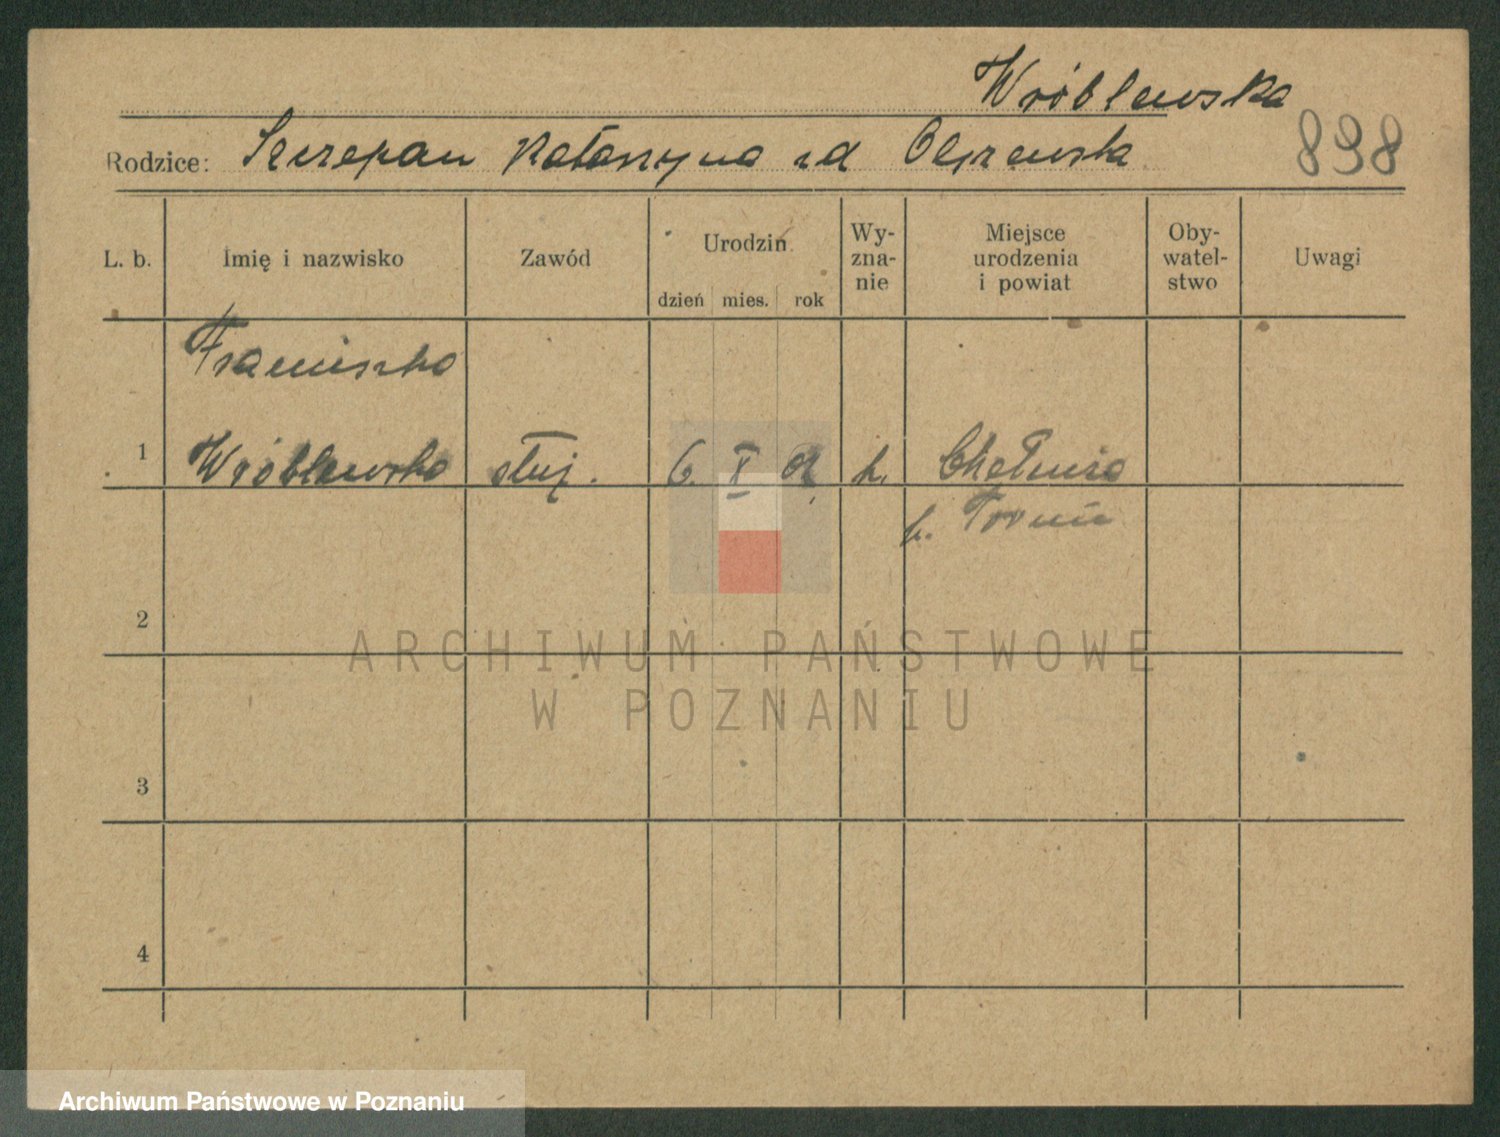 Wróblewska
Rodzice: Szczepan Katarzyna zd Olszewska
898
L. b. Imię i nazwisko Zawód Urodzin dzień mies. rok Wy-zna-nie Miejsce urodzenia i powiat Oby-watel-stwo Uwagi
Franciszka
1 Wróblewska służ. 6. X k. Chełmża
p. Toruń
2
3
4
ARCHIWUM PAŃSTWOWE
W POZNANIU
Archiwum Państwowe w Poznaniu